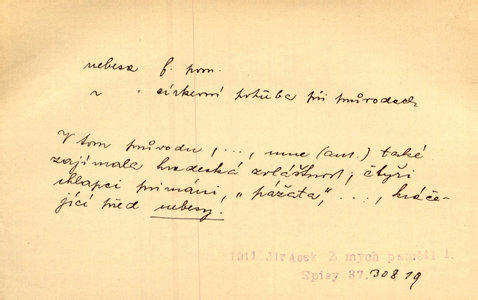 nebesa f. pom.
církevní potřeba při průvodech
V tom průvodu, ..., mne (aut.) také
zajímala hradecká zvláštnost, čtyři
chlapci primani, „pážata", ..., kráče-
jící před nebesy.
1911 Jirásek Z mých pamětí 1.
Spisy 37. 308 19